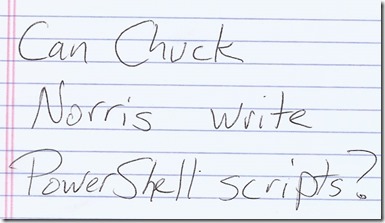 Can Chuck
Norris write
PowerShell scripts?